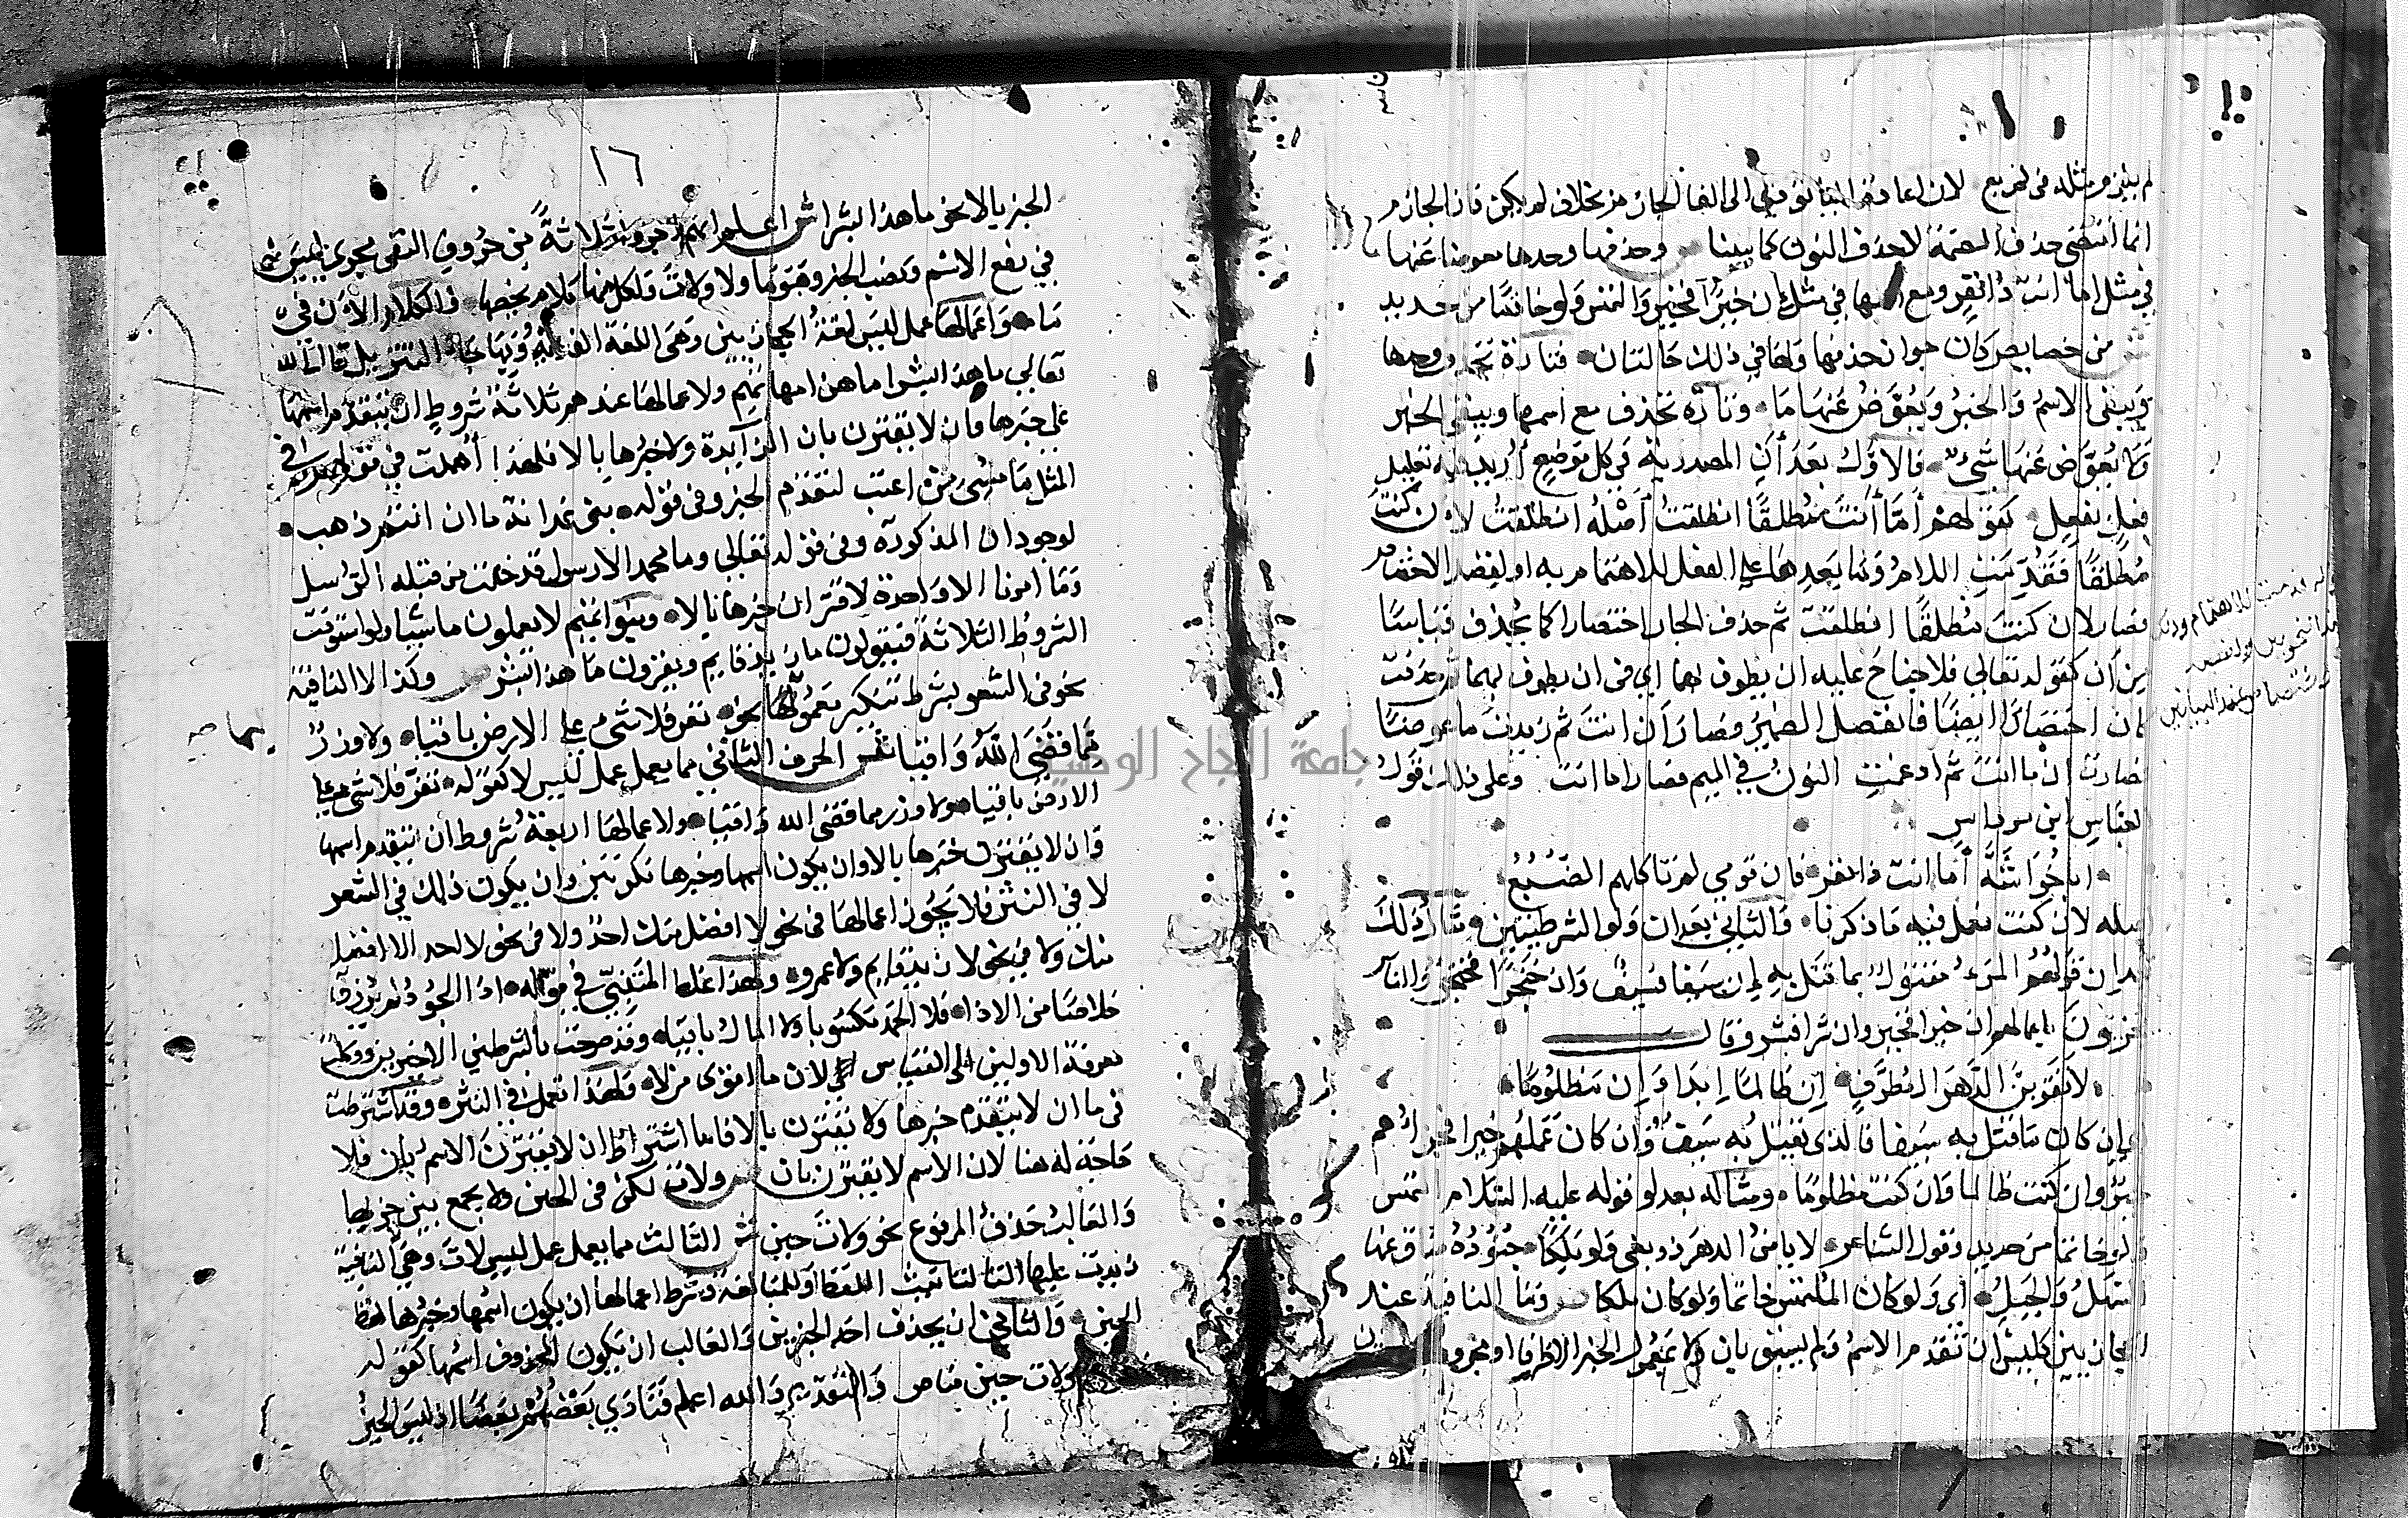 لان اعادة الى الفا الجازم بخلاف لم يكن فان الجازم
انما اقتضى حذف الضمة لا حذف النون كما بينا وحذفها وحدها معوضا عنها
في مثل اما انت ذا نفر ومع اسمها في مثل ان خيرا فخير والتمس ولو خاتما من حديد
من خصايص كان جواز حذفها ولها في ذلك حالتان فتارة تحذف وحدها
ويبقى الاسم والخبر ويعوض عنها ما وتارة تحذف مع اسمها ويبقى الخبر
ولا يعوض عنها شيء فالاول بعد أن المصدرية في كل موضع أريد فيه تعليل
فعل بفعل كقولهم أما أنت منطلقا انطلقت أصله انطلقت لان كنت
منطلقا فقدمت اللام وما بعدها على الفعل للاهتمام به او لقصد الاختصاص
فصار لان كنت منطلقا انطلقت ثم حذف الجار اختصارا كما يحذف قياسا
من أن كقوله تعالى فلا جناح عليه ان يطوف بهما اي في ان يطوف بهما ثم حذفت
كان اختصارا ايضا فانفصل الضمير وصار أن انت ثم زيدت ما عوضا
فصارت ان ما انت ثم ادغمت النون في الميم فصار اما انت وعلى ذلك قول
العباس ابن مرداس
ابا خراشة أما انت ذا نفر فان قومي لم تاكلهم الضبع
اصله لان كنت فعمل فيه ما ذكرنا والثاني بعد ان ولو الشرطيتين مثال ذلك
بعد ان قولهم المرء مقتول بما قتل به إن سيفا فسيف وان خنجرا فخنجر والناس
مجزيون باعمالهم ان خيرا فخير وان شرا فشر وقال
لا تقربن الدهر ال مطرف إن ظالما ابدا وإن مظلوما
اي إن كان ما قتل به سيفا فالذي يقتل به سيف وان كان عملهم خيرا فجزاؤهم
خير وان كنت ظالما وان كنت مظلوما ومثاله بعد لو قوله عليه السلام التمس
ولو خاتما من حديد وقول الشاعر لا يامن الدهر ذو بغي ولو ملكا جنوده ضاق عنها
السهل والجبل اي ولو كان الملتمس خاتما ولو كان ملكا وما النافية عند
الحجازيين كليس ان تقدم الاسم ولم يسبق بان ولا بمعمول الخبر الا ظرفا او مجرورا
جامعة النجاح الوطنية
١٦
الخبر بالا نحو ما هذا بشرا ش اعلم انهم اجروا ثلاثة من حروف النفي مجرى ليس
في رفع الاسم ونصب الخبر وهو ما ولا ولات ولكل منها كلام يخصها والكلام الان في
ما واعمالها عمل ليس لغة الحجازيين وهي اللغة القويمة وبها جاء التنزيل قال الله
تعالى ما هذا بشرا ما هن امهاتهم ولاعمالها عندهم ثلاثة شروط ان يتقدم اسمها
على خبرها وان لا يقترن بان الزايدة ولا خبرها بالا فلهذا أهملت في قولهم في
المثل ما مسيء من اعتب لتقدم الخبر وفي قوله بني غدانة ما ان انتم ذهب
لوجود ان المذكورة وفي قوله تعالى وما محمد الا رسول قد خلت من قبله الرسل
وما امرنا الا واحدة لاقتران خبرها بالا وبنوا تميم لا يعملون ما شيا ولو استوفت
الشروط الثلاثة فيقولون ما زيد قايم ويقرون ما هذا بشر وكذا لا النافية
نحو في الشعر بشرط تنكير معموليها نحو تعز فلا شيء على الارض باقيا ولا وزر
مما قضى الله واقيا ش الحرف الثاني مما يعمل عمل ليس لا كقوله تعز فلا شيء على
الارض باقيا ولا وزر مما قضى الله واقيا ولاعمالها اربعة شروط ان يتقدم اسمها
وان لا يقترن خبرها بالا وان يكون اسمها وخبرها نكرتين وان يكون ذلك في الشعر
لا في النثر فلا يجوز اعمالها في نحو لا افضل منك احد ولا في نحو لا احد الا افضل
منك ولا في نحو لا زيد قايم ولا عمرو ولهذا غلط المتنبي في قوله اذا الجود لم يرزق
خلاصا من الاذا فلا الحمد مكسوبا ولا المال باقيا وقد صرحت بالشرطين الاخيرين ووكلت
معرفة الاولين الى القياس على لان ما اقوى من لا ولهذا تعمل في النثر وقد اشترطت
في ما ان لا يتقدم خبرها ولا تقترن بالا فاما اشتراط ان لا يقترن الاسم بان فلا
حاجة له هنا لان الاسم لا يقترن بان ولات لكن في الحين ولا يجمع بين جزيها
والغالب حذف المرفوع نحو ولات حين ش الثالث مما يعمل عمل ليس لات وهي النافية
زيدت عليها التا لتانيث اللفظ او للمبالغة وشرط اعمالها ان يكون اسمها وخبرها لفظ
الحين والثاني ان يحذف احد الجزين والغالب ان يكون المحذوف اسمها كقوله
ولات حين مناص والتقدير والله اعلم فنادي بعضهم بعضا ان ليس الحين